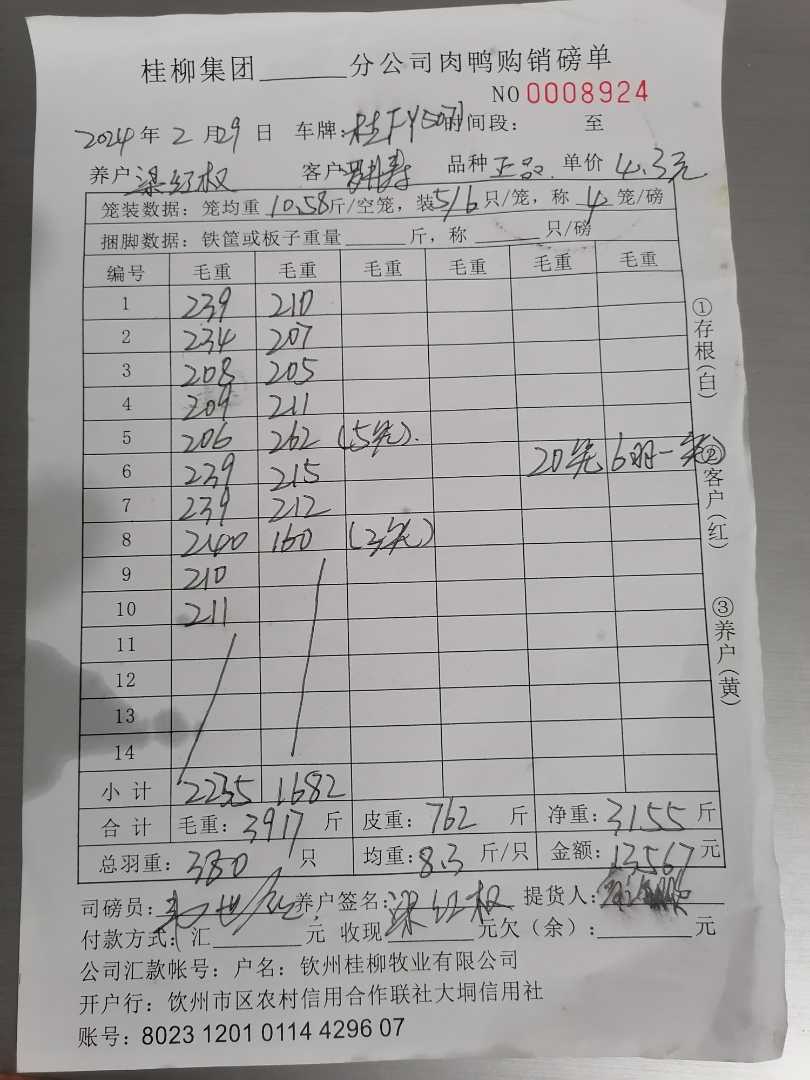 桂柳集团______分公司肉鸭购销磅单
NO 0008924
2024年2月29日 车牌: 时间段: 至
养户 梁红权 客户 品种 正品. 单价 4.3元
笼装数据: 笼均重 10.58斤/空笼, 装5/6只/笼, 称 4 笼/磅
捆脚数据: 铁筐或板子重量______斤, 称______只/磅
编号 毛重 毛重 毛重 毛重 毛重 毛重
1 239 210
2 234 207
3 208 205
4 209 211
5 206 262 (5笼).
6 239 215 20笼 6羽一笼
7 239 212
8 240 160 (3笼)
9 210
10 211
11
12
13
14
小计 2235 1682
合计 毛重: 3917 斤 皮重: 762 斤 净重: 3155 斤
总羽重: 380 只 均重: 8.3 斤/只 金额: 13567 元
司磅员: 养户签名: 梁红权 提货人:
付款方式: 汇______元 收现______元欠(余):______元
公司汇款帐号: 户名: 钦州桂柳牧业有限公司
开户行: 饮州市区农村信用合作联社大垌信用社
账号: 8023 1201 0114 4296 07
①存根(白)
②客户(红)
③养户(黄)